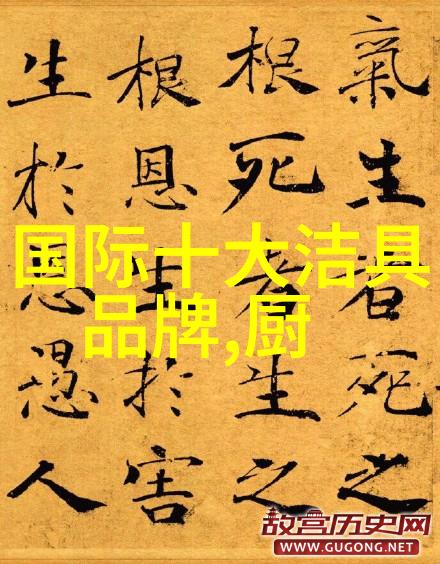 氣生者死之
根死者生之
根恩生於害
生於恩愚人
国际十大洁具
品牌,厨
故宫历史网
WWW.GUGONG.NET